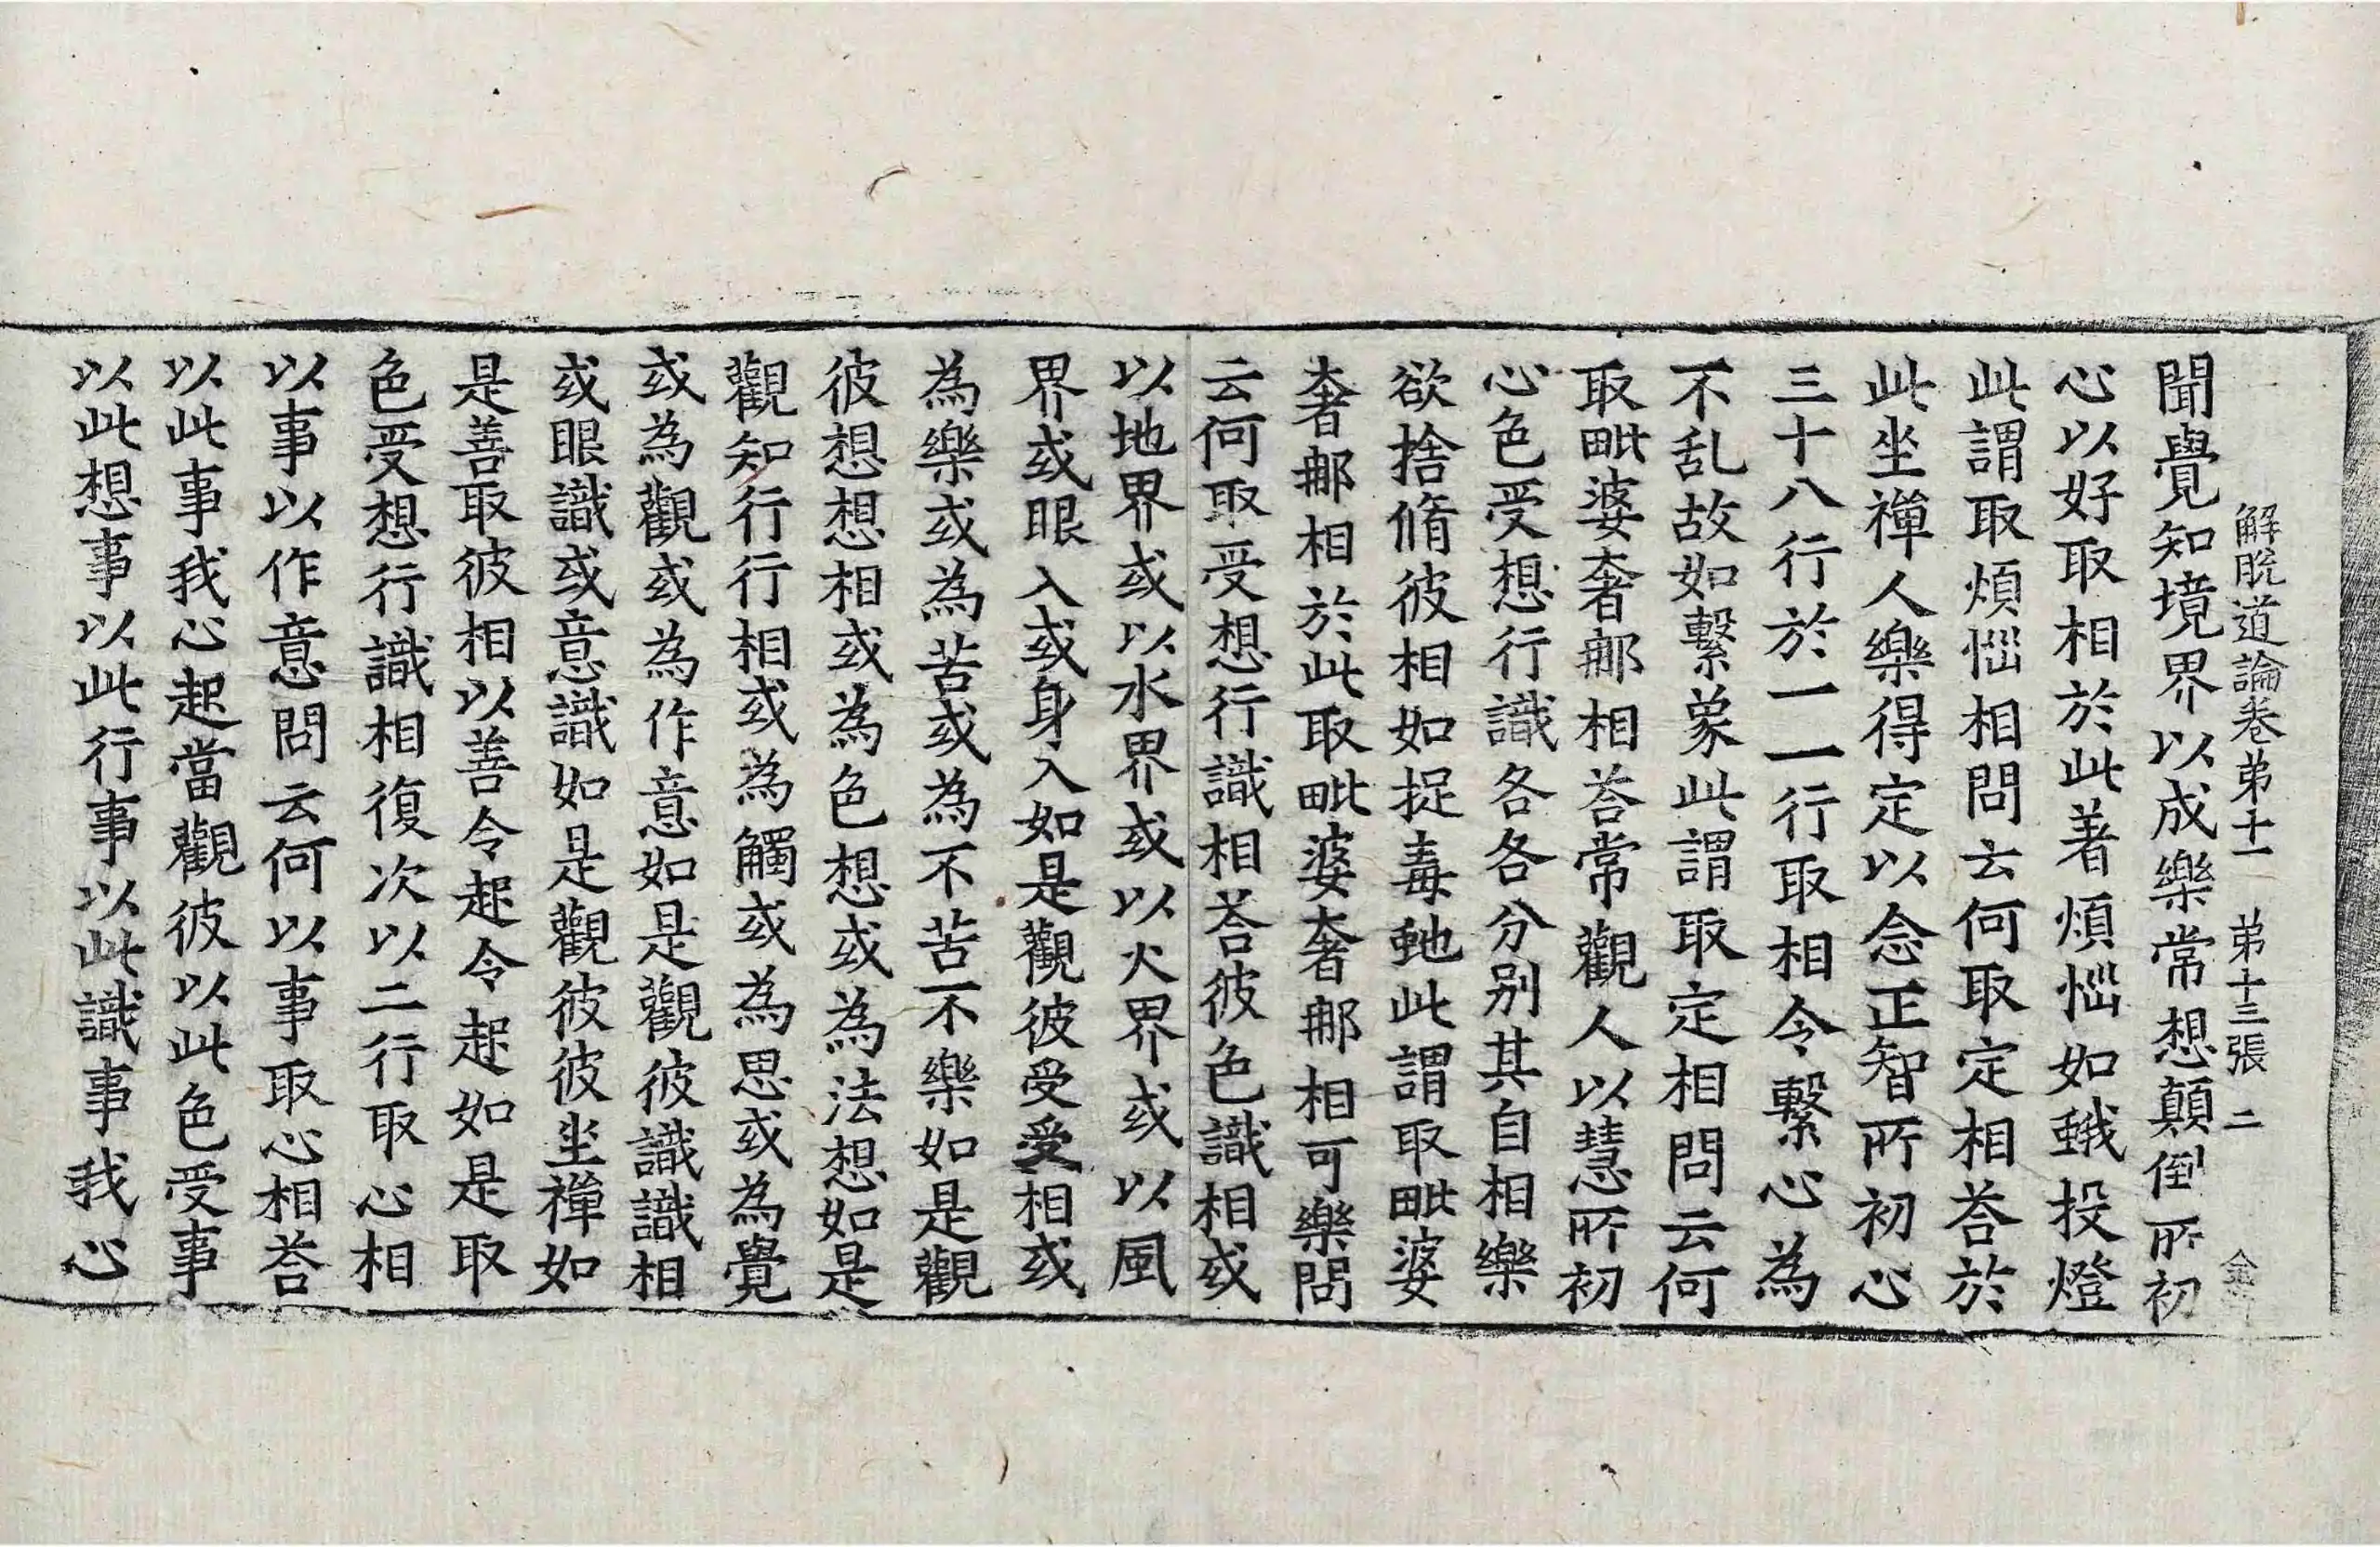 解脫道論卷苐十一 苐十三張 二
聞覺知境界以成樂常想顛倒所初
心以好取相於此著煩惱如蛾投燈
此謂取煩惱相問云何取定相荅於
此坐禪人樂得定以念正智所初心
三十八行於一一行取相令繫心為
不乱故如繫象此謂取定相問云何
取毗婆奢郍相荅常觀人以慧所初
心色受想行識各各分别其自相樂
欲捨脩彼相如捉毒虵此謂取毗婆
奢郍相於此取毗婆奢郍相可樂問
云何取受想行識相荅彼色識相或
以地界或以水界或以火界或以風
界或眼入或身入如是觀彼受受相或
為樂或為苦或為不苦不樂如是觀
彼想想相或為色想或為法想如是
觀知行行相或為觸或為思或為覺
或為觀或為作意如是觀彼識識相
或眼識或意識如是觀彼彼坐禪如
是善取彼相以善令起令起如是取
色受想行識相復次以二行取心相
以事以作意問云何以事取心相荅
以此事我心起當觀彼以此色受事
以此想事以此行事以此識事我心